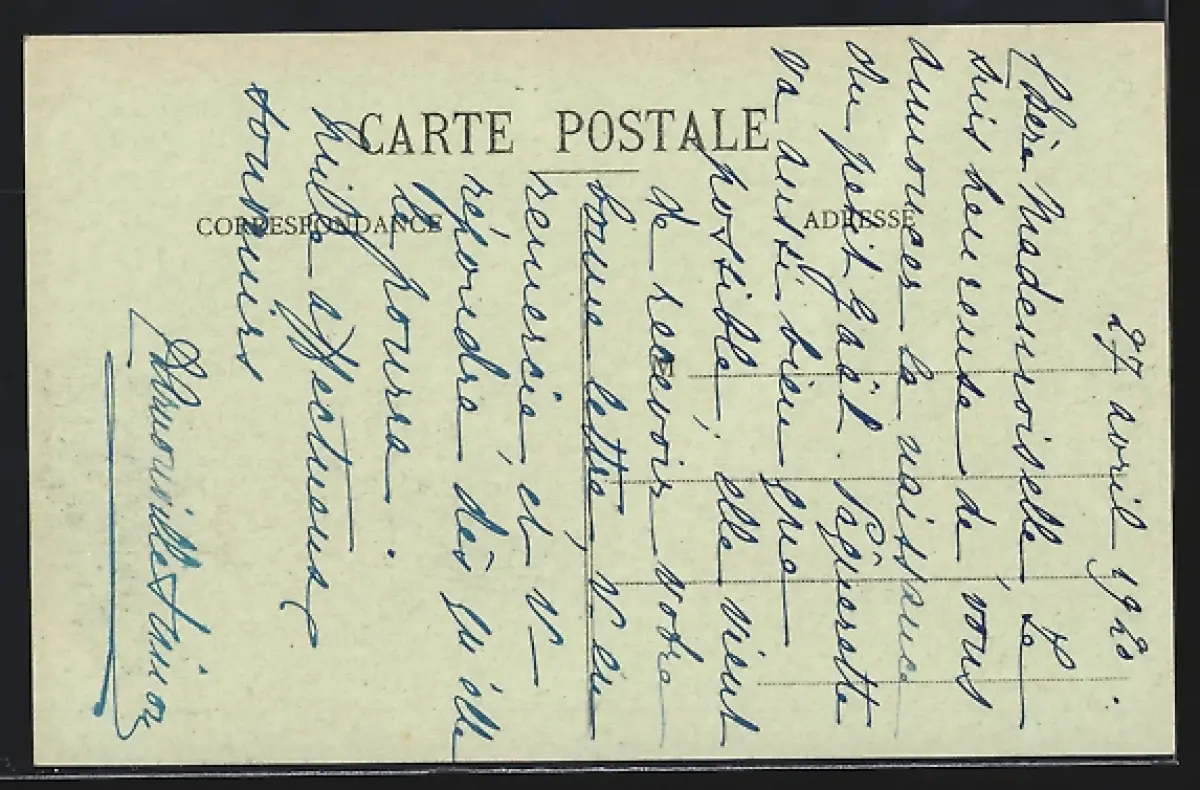 CARTE POSTALE
CORRESPONDANCE
ADRESSE
27 avril 1920.
Chère Mademoiselle, Je
suis heureuse de vous
annoncer la naissance
du petit Gaël. Paquerette
va aussi bien que
possible, elle vient
de recevoir votre
bonne lettre, v. en
remercie, et v.
répondra dès qu'elle
le pourra.
Mille affectueux
souvenirs